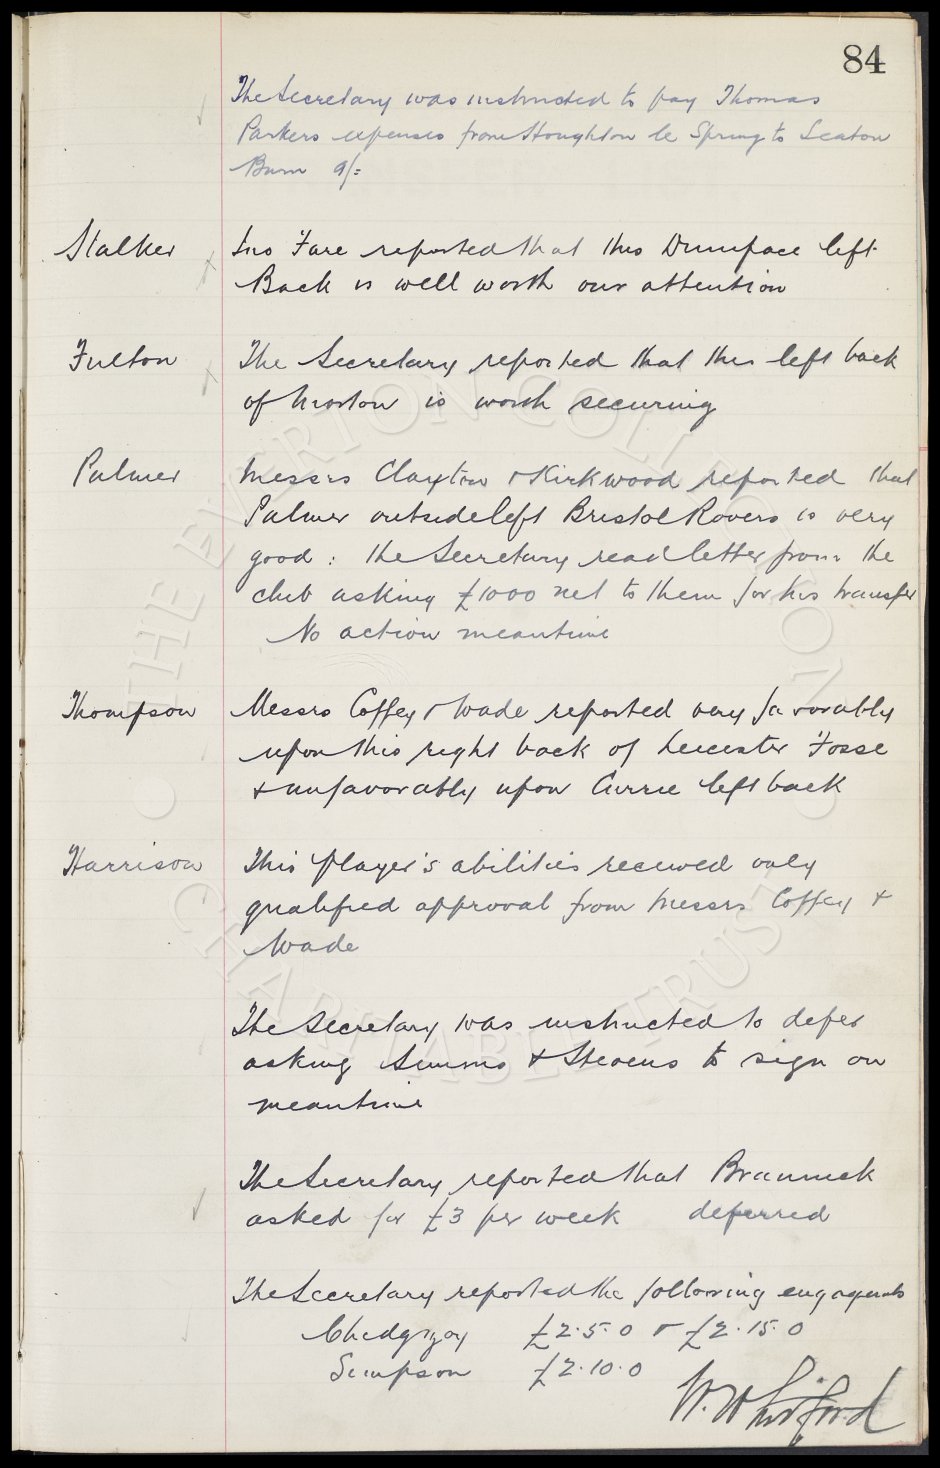 84
The Secretary was instructed to pay Thomas
Parkers expenses from Houghton le Spring to Seaton
Burn 9/=
Stalker
Jno Fare reported that this Dunipace left
Back is well worth our attention
Fulton
The Secretary reported that this left back
of Morton is worth securing
Palmer
Messrs Clayton & Kirkwood reported that
Palmer outside left Bristol Rovers is very
good : the Secretary read letter from the
club asking £1000 net to them for his transfer
No action meantime
Thompson
Messrs Coffey & Wade reported very favorably
upon this right back of Leicester Fosse
& unfavorably upon Currie left back
Harrison
This player's abilities received only
qualified approval from Messrs Coffey &
Wade
The Secretary was instructed to defer
asking Simms & Stevens to sign on
meantime
The Secretary reported that Brannick
asked for £3 per week deferred
The Secretary reported the following engagements
Chedgzoy £2.5.0 & £2.15.0
Simpson £2.10.0
THE EVERTON COLLECTION
CHARITABLE TRUST